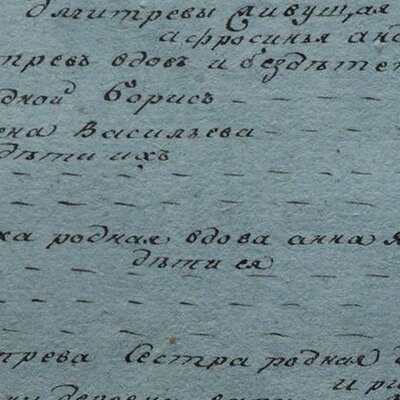 дмитревы живущая
афросинья анд
тревъ вдовъ и бездѣтен
дной Борисъ
ена Васильева
дѣти ихъ
ха родная вдова анна я
дѣти ея
трева Сестра родная
и ри